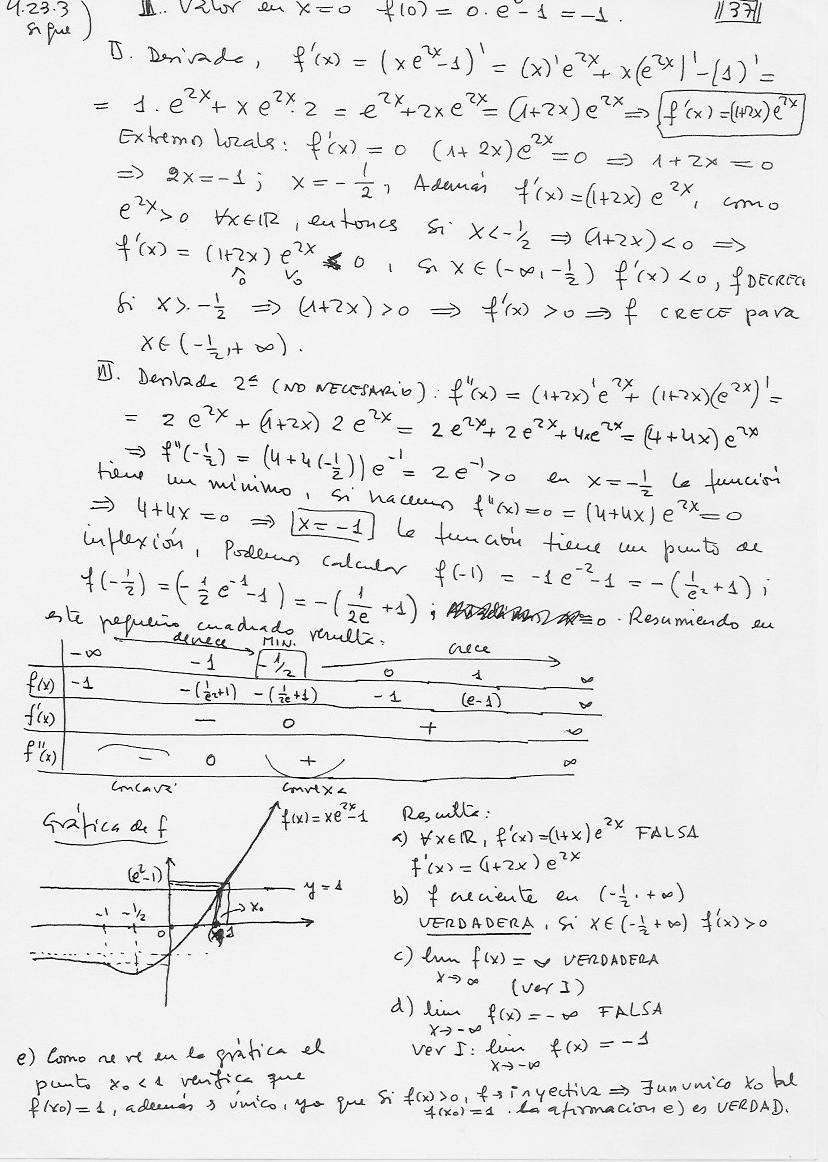 4.23.3 II. Valor en x=0 f(0) = 0·e⁰-1 = -1. //37//
sigue)
II. Derivada, f'(x) = (xe^{2x}-1)' = (x)'e^{2x} + x(e^{2x})' - (1)' =
= 1·e^{2x} + xe^{2x}·2 = e^{2x}+2xe^{2x} = (1+2x)e^{2x} ⇒ f'(x) = (1+2x)e^{2x}
Extremos locales: f'(x) = 0 (1+2x)e^{2x} = 0 ⇒ 1+2x = 0
⇒ 2x = -1 ; x = -1/2, Además f'(x) = (1+2x)e^{2x}, como
e^{2x}>0 ∀x∈ℝ, entonces si x<-1/2 ⇒ (1+2x)<0 ⇒
f'(x) = (1+2x) e^{2x} < 0, si x∈(-∞,-1/2) f'(x)<0, f DECRECE
^0 v0
Si x>-1/2 ⇒ (1+2x)>0 ⇒ f'(x)>0 ⇒ f CRECE para
x∈(-1/2,+∞).
III. Derivada 2ª (NO NECESARIO): f''(x) = (1+2x)'e^{2x} + (1+2x)(e^{2x})' =
= 2e^{2x} + (1+2x) 2e^{2x} = 2e^{2x}+2e^{2x}+4xe^{2x} = (4+4x)e^{2x}
⇒ f''(-1/2) = (4+4(-1/2))e^{-1} = 2e^{-1}>0 en x=-1/2 la función
tiene un mínimo, si hacemos f''(x)=0 = (4+4x)e^{2x}=0
⇒ 4+4x=0 ⇒ x=-1 la función tiene un punto de
inflexión, Podemos calcular f(-1) = -1e^{-2}-1 = -(1/e²+1);
f(-1/2) = (-1/2 e^{-1}-1) = -(1/2e +1); =0. Resumiendo en
este pequeño cuadrado resulta:
decrece MIN. crece
-∞ -1 -1/2 0 1 ∞
f(x) -1 -(1/e²+1) -(1/2e+1) -1 (e-1) ∞
f'(x) - 0 + ∞
f''(x) - 0 + ∞
concava convexa
Gráfica de f
f(x)=xe^{2x}-1
(e²-1)
y=1
x₀
-1 -1/2 0 1
Resulta:
a) ∀x∈ℝ, f'(x)=(1+x)e^{2x} FALSA
f'(x) = (1+2x)e^{2x}
b) f creciente en (-1/2,+∞)
VERDADERA, si x∈(-1/2+∞) f'(x)>0
c) lim f(x) = ∞ VERDADERA
x→∞ (ver I)
d) lim f(x) = -∞ FALSA
x→-∞
ver I: lim f(x) = -1
x→-∞
e) Como se ve en la gráfica el
punto x₀<1 verifica que
f(x₀)=1, además es único, ya que si f(x)>0, f es inyectiva ⇒ ∃ un unico x₀ tal
f(x₀)=1. la afirmación e) es VERDAD.